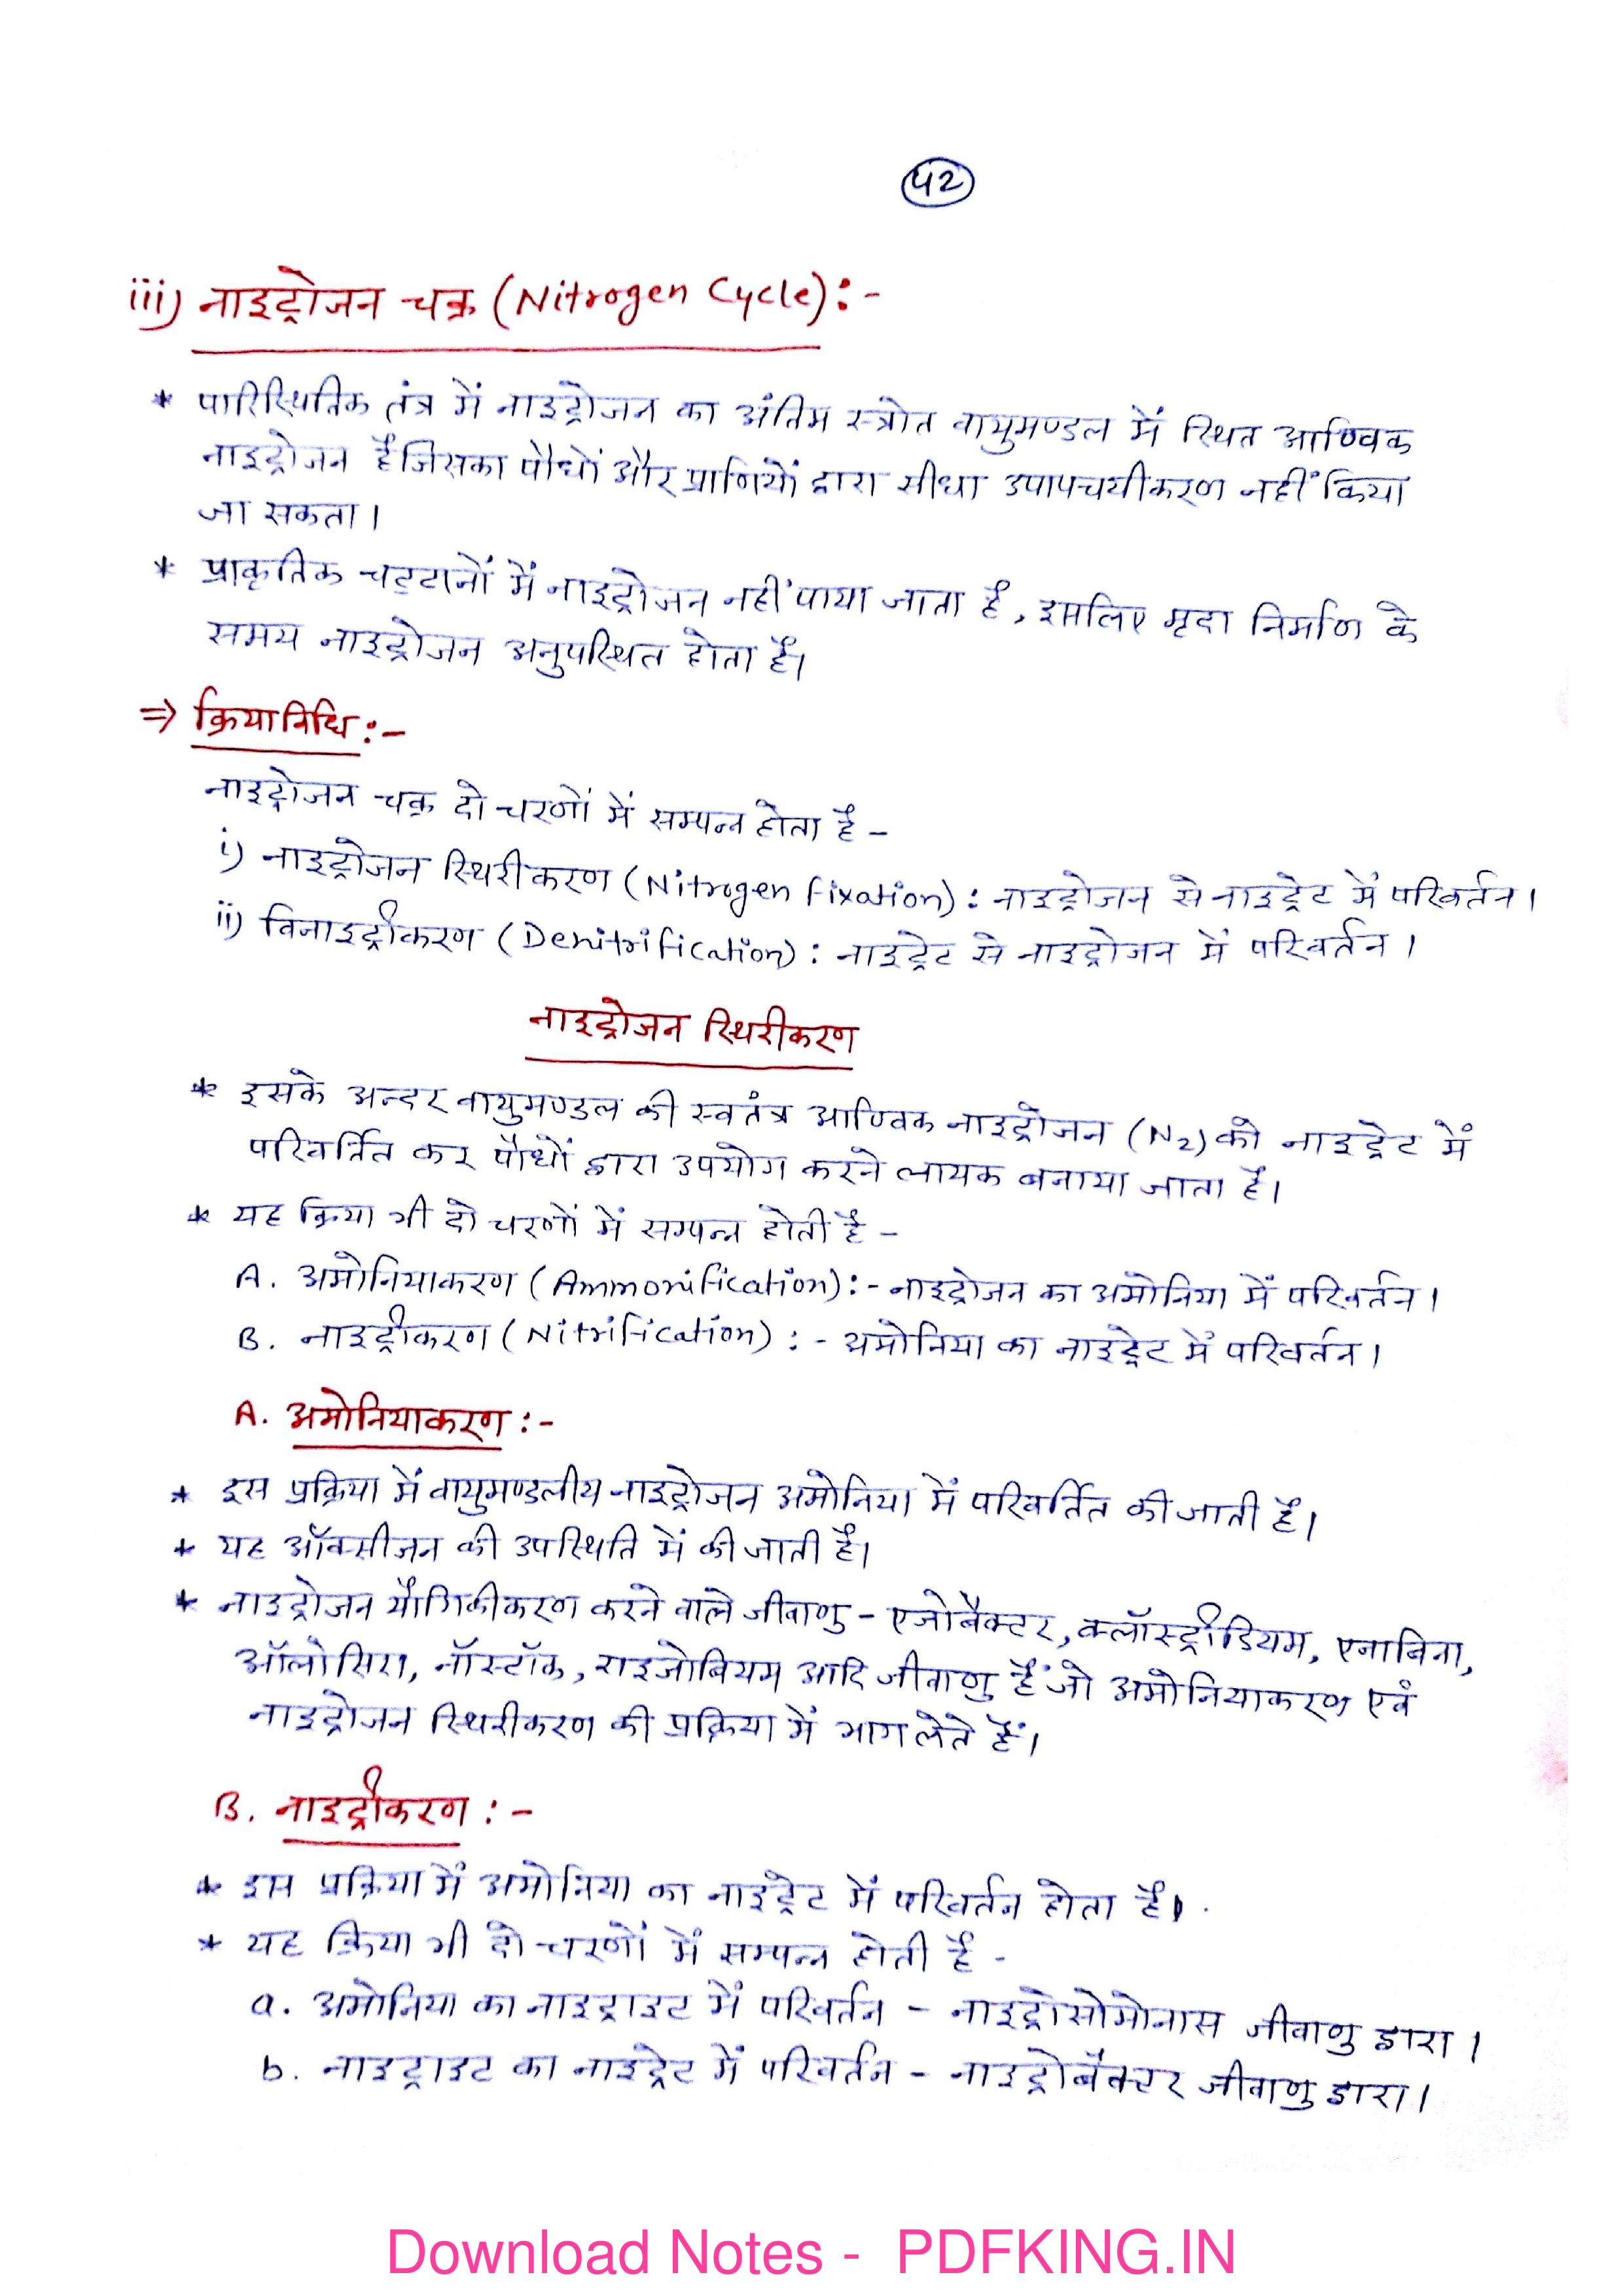 42
iii) नाइट्रोजन चक्र (Nitrogen Cycle):-
* पारिस्थितिक तंत्र में नाइट्रोजन का अंतिम स्त्रोत वायुमण्डल में स्थित आण्विक
नाइट्रोजन है जिसका पौधों और प्राणियों द्वारा सीधा उपापचयीकरण नहीं किया
जा सकता।
* प्राकृतिक चट्टानों में नाइट्रोजन नहीं पाया जाता है, इसलिए मृदा निर्माण के
समय नाइट्रोजन अनुपस्थित होता है।
⇒ क्रियाविधि:-
नाइट्रोजन चक्र दो चरणों में सम्पन्न होता है -
i) नाइट्रोजन स्थिरीकरण (Nitrogen fixation): नाइट्रोजन से नाइट्रेट में परिवर्तन।
ii) विनाइट्रीकरण (Denitrification): नाइट्रेट से नाइट्रोजन में परिवर्तन।
नाइट्रोजन स्थिरीकरण
* इसके अन्दर वायुमण्डल की स्वतंत्र आण्विक नाइट्रोजन (N2) को नाइट्रेट में
परिवर्तित कर पौधों द्वारा उपयोग करने लायक बनाया जाता है।
* यह क्रिया भी दो चरणों में सम्पन्न होती है -
A. अमोनियाकरण (Ammonification):- नाइट्रोजन का अमोनिया में परिवर्तन।
B. नाइट्रीकरण (Nitrification):- अमोनिया का नाइट्रेट में परिवर्तन।
A. अमोनियाकरण:-
* इस प्रक्रिया में वायुमण्डलीय नाइट्रोजन अमोनिया में परिवर्तित की जाती है।
* यह ऑक्सीजन की उपस्थिति में की जाती है।
* नाइट्रोजन यौगिकीकरण करने वाले जीवाणु - एजोबैक्टर, क्लॉस्ट्रीडियम, एनाबिना,
ऑलोसिरा, नॉस्टॉक, राइजोबियम आदि जीवाणु हैं जो अमोनियाकरण एवं
नाइट्रोजन स्थिरीकरण की प्रक्रिया में भाग लेते हैं।
B. नाइट्रीकरण:-
* इस प्रक्रिया में अमोनिया का नाइट्रेट में परिवर्तन होता है।
* यह क्रिया भी दो चरणों में सम्पन्न होती है -
a. अमोनिया का नाइट्राइट में परिवर्तन - नाइट्रोसोमोनास जीवाणु द्वारा।
b. नाइट्राइट का नाइट्रेट में परिवर्तन - नाइट्रोबैक्टर जीवाणु द्वारा।
Download Notes - PDFKING.IN